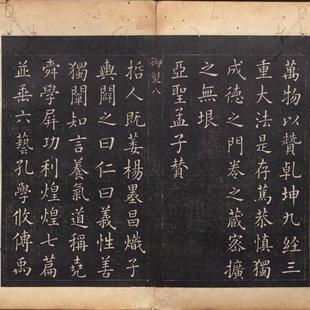 萬物以贊乾坤九經三
重大法是存篤恭慎獨
成德之門卷之藏密擴
之無垠
亞聖孟子贊
御製八
哲人既萎楊墨昌熾子
輿闢之曰仁曰義性善
獨闡知言養氣道稱堯
舜學屏功利煌煌七篇
並垂六藝孔學攸傳禹